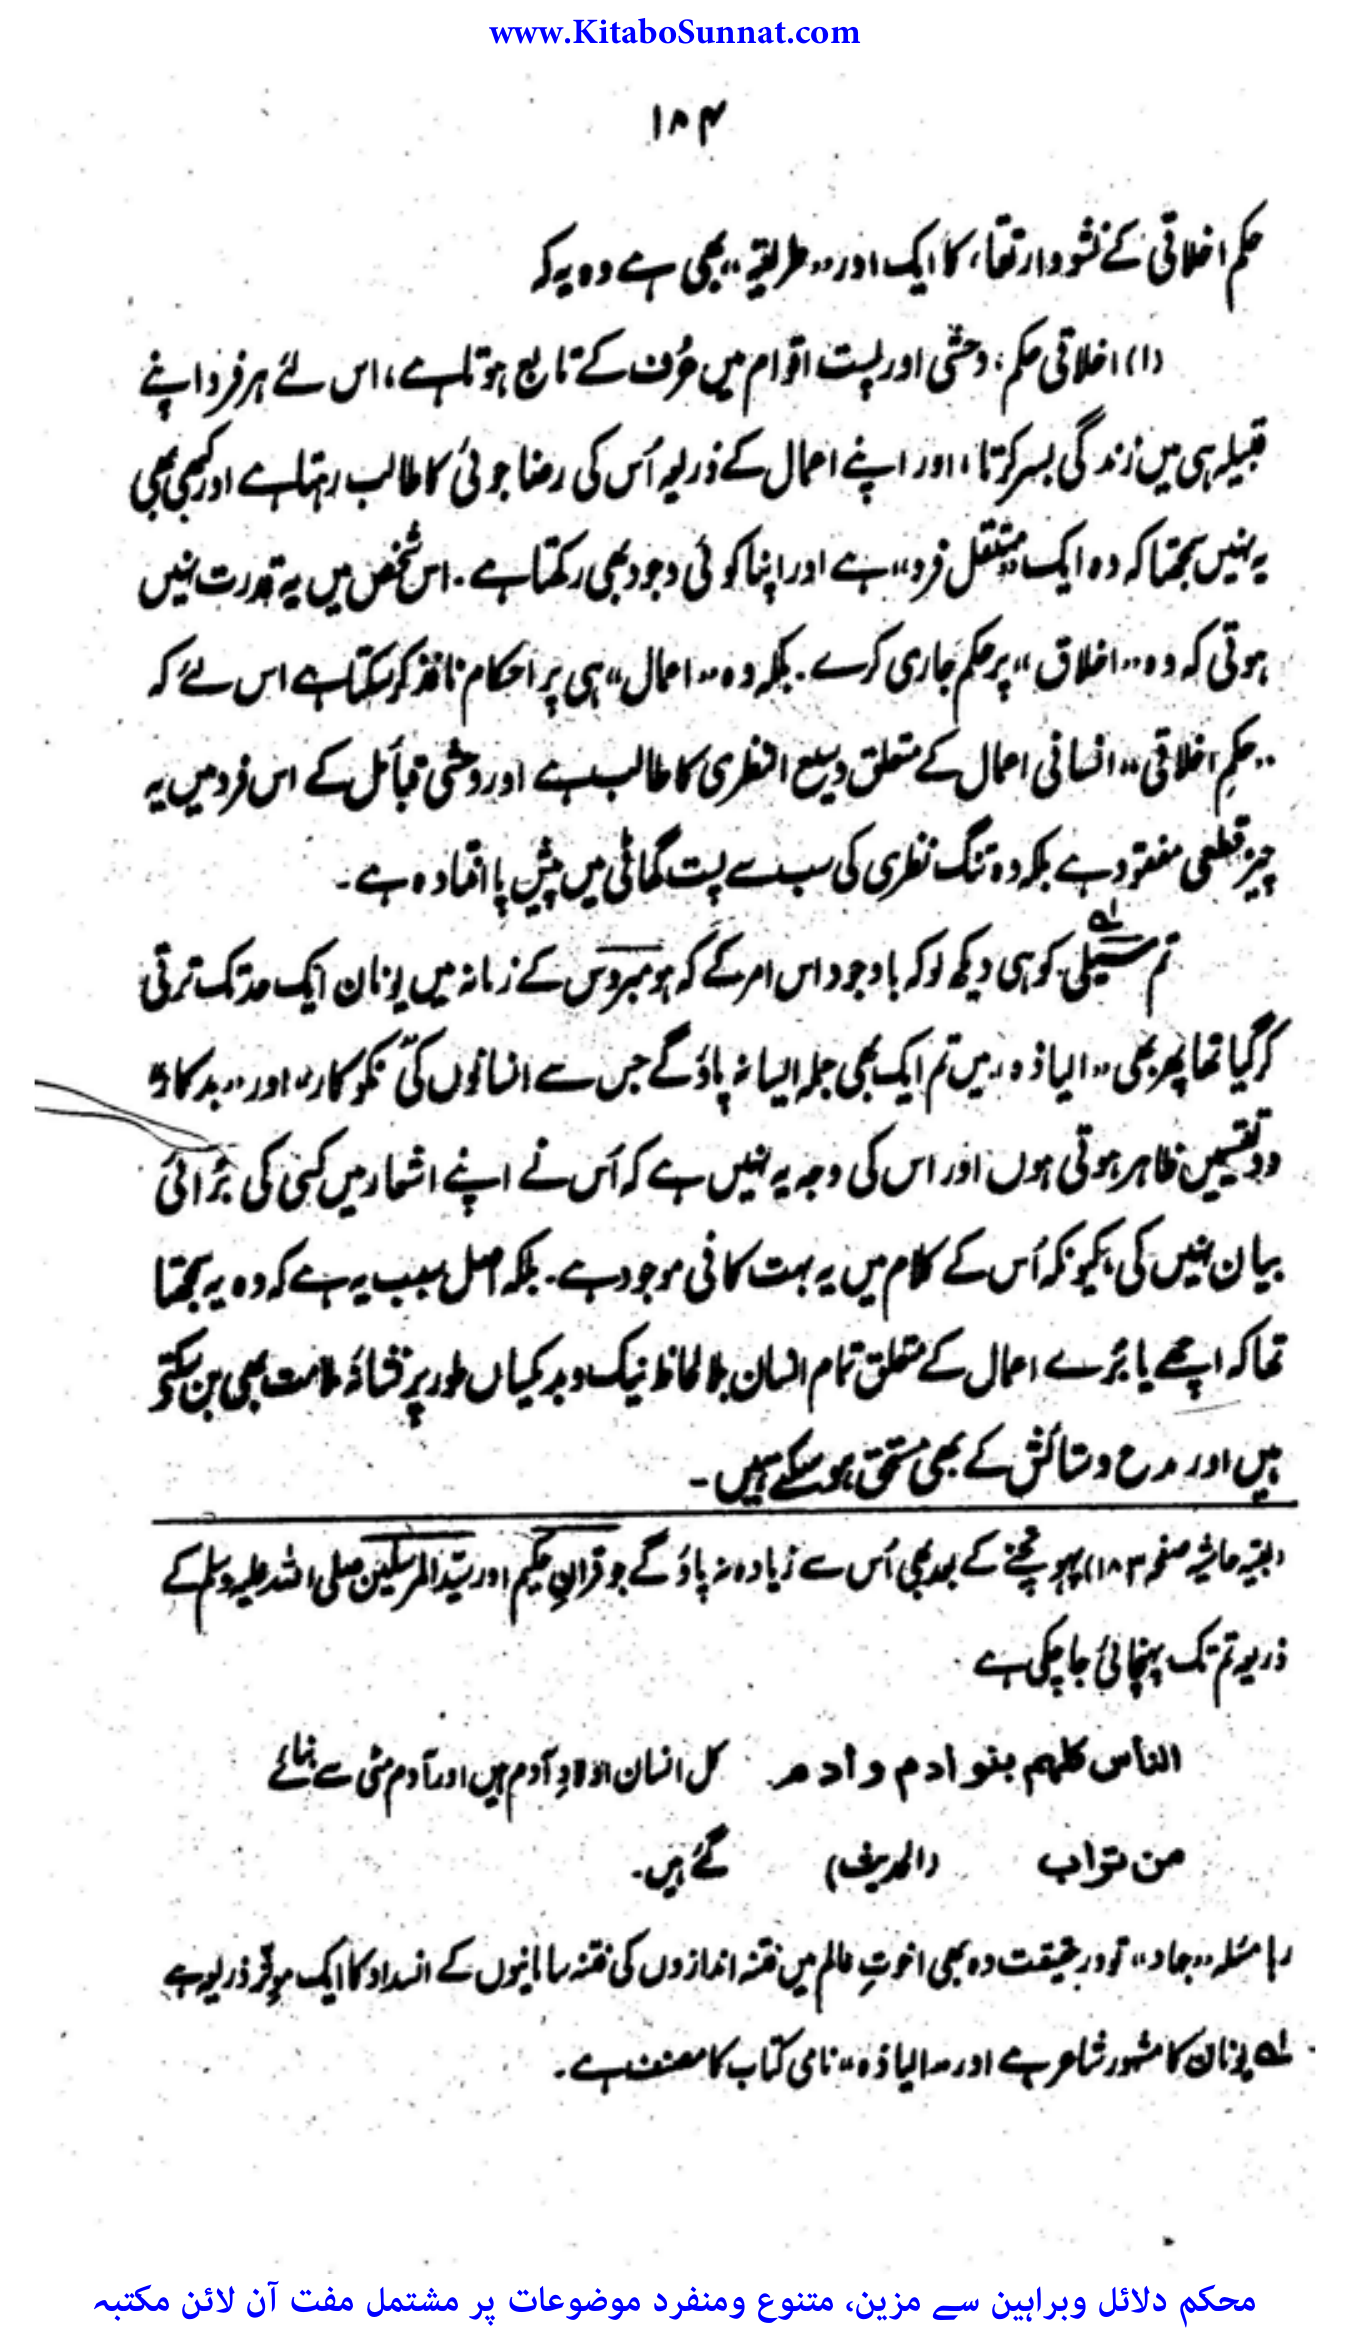 www.KitaboSunnat.com
۱۸۴
حکم اخلاقی کے نشو وارتقا، کا ایک اور ”طریقہ“ بھی ہے وہ یہ کہ
(۱) اخلاقی حکم، وحشی اور پست اقوام میں عُرف کے تابع ہوتا ہے، اس لئے ہر فرد اپنے
قبیلہ ہی میں زندگی بسر کرتا، اور اپنے اعمال کے ذریعہ اُس کی رضا جوئی کا طالب رہتا ہے اور کبھی بھی
یہ نہیں سمجھتا کہ وہ ایک ”مستقل فرد“ ہے اور اپنا کوئی وجود بھی رکھتا ہے۔ اس شخص میں یہ قدرت نہیں
ہوتی کہ وہ ”اخلاق“ پر حکم جاری کرے۔ بلکہ وہ ”اعمال“ ہی پر احکام نافذ کر سکتا ہے اس لئے کہ
”حکمِ اخلاقی“ انسانی اعمال کے متعلق وسیع النظری کا طالب ہے اور وحشی قبائل کے اس فرد میں یہ
چیز قطعی مفقود ہے بلکہ وہ تنگ نظری کی سب سے پست گھاٹی میں پیش پا افتادہ ہے۔
تم ۱؎ کو ہی دیکھ لو کہ باوجود اس امر کے کہ ہومیروس کے زمانہ میں یونان ایک حد تک ترقی
کر گیا تھا پھر بھی ”الیاذہ“ میں تم ایک بھی جملہ ایسا نہ پاؤ گے جس سے انسانوں کی ”نکو کار“ اور ”بدکار“
دو قسمیں ظاہر ہوتی ہوں اور اس کی وجہ یہ نہیں ہے کہ اُس نے اپنے اشعار میں کسی کی بُرائی
بیان نہیں کی، کیونکہ اُس کے کلام میں یہ بہت کافی موجود ہے۔ بلکہ اصل سبب یہ ہے کہ وہ یہ سمجھتا
تھا کہ اچھے یا بُرے اعمال کے متعلق تمام انسان بلا لحاظ نیک و بد یکساں طور پر نشانۂ ملامت بھی بن سکتے
ہیں اور مدح و ستائش کے بھی مستحق ہو سکتے ہیں۔
(بقیہ حاشیہ صفحہ ۱۸۳) پہونچنے کے بعد بھی اُس سے زیادہ نہ پاؤ گے جو قرانِ حکیم اور سیّد المرسلین صلی اللہ علیہ وسلم کے
ذریعہ تم تک پہنچائی جا چکی ہے
الناس کلہم بنو ادم وادم کل انسان اولادِ آدم ہیں اور آدم مٹی سے بنائے
من تراب (الحدیث) گئے ہیں۔
رہا مسئلہ ”جہاد“ تو درحقیقت وہ بھی اخوتِ عالم میں فتنہ اندازوں کی فتنہ سامانیوں کے انسداد کا ایک موثر ذریعہ ہے
۱؎ یونان کا مشہور شاعر ہے اور ”الیاذہ“ نامی کتاب کا مصنف ہے۔
محکم دلائل وبراہین سے مزین، متنوع ومنفرد موضوعات پر مشتمل مفت آن لائن مکتبہ